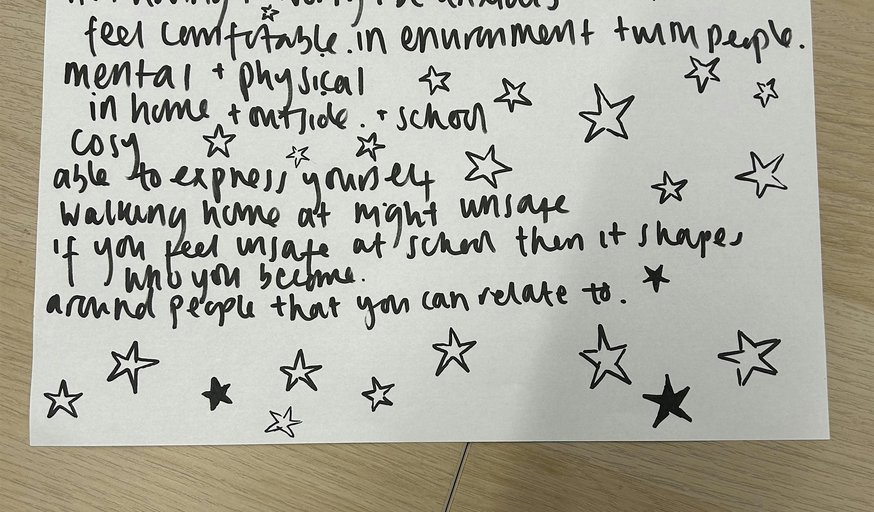 feel comfortable in enviornment + with people.
mental + physical
in home + outside. + school
cosy
able to express yourself
walking home at night unsafe
if you feel unsafe at school then it shapes
who you become.
around people that you can relate to.